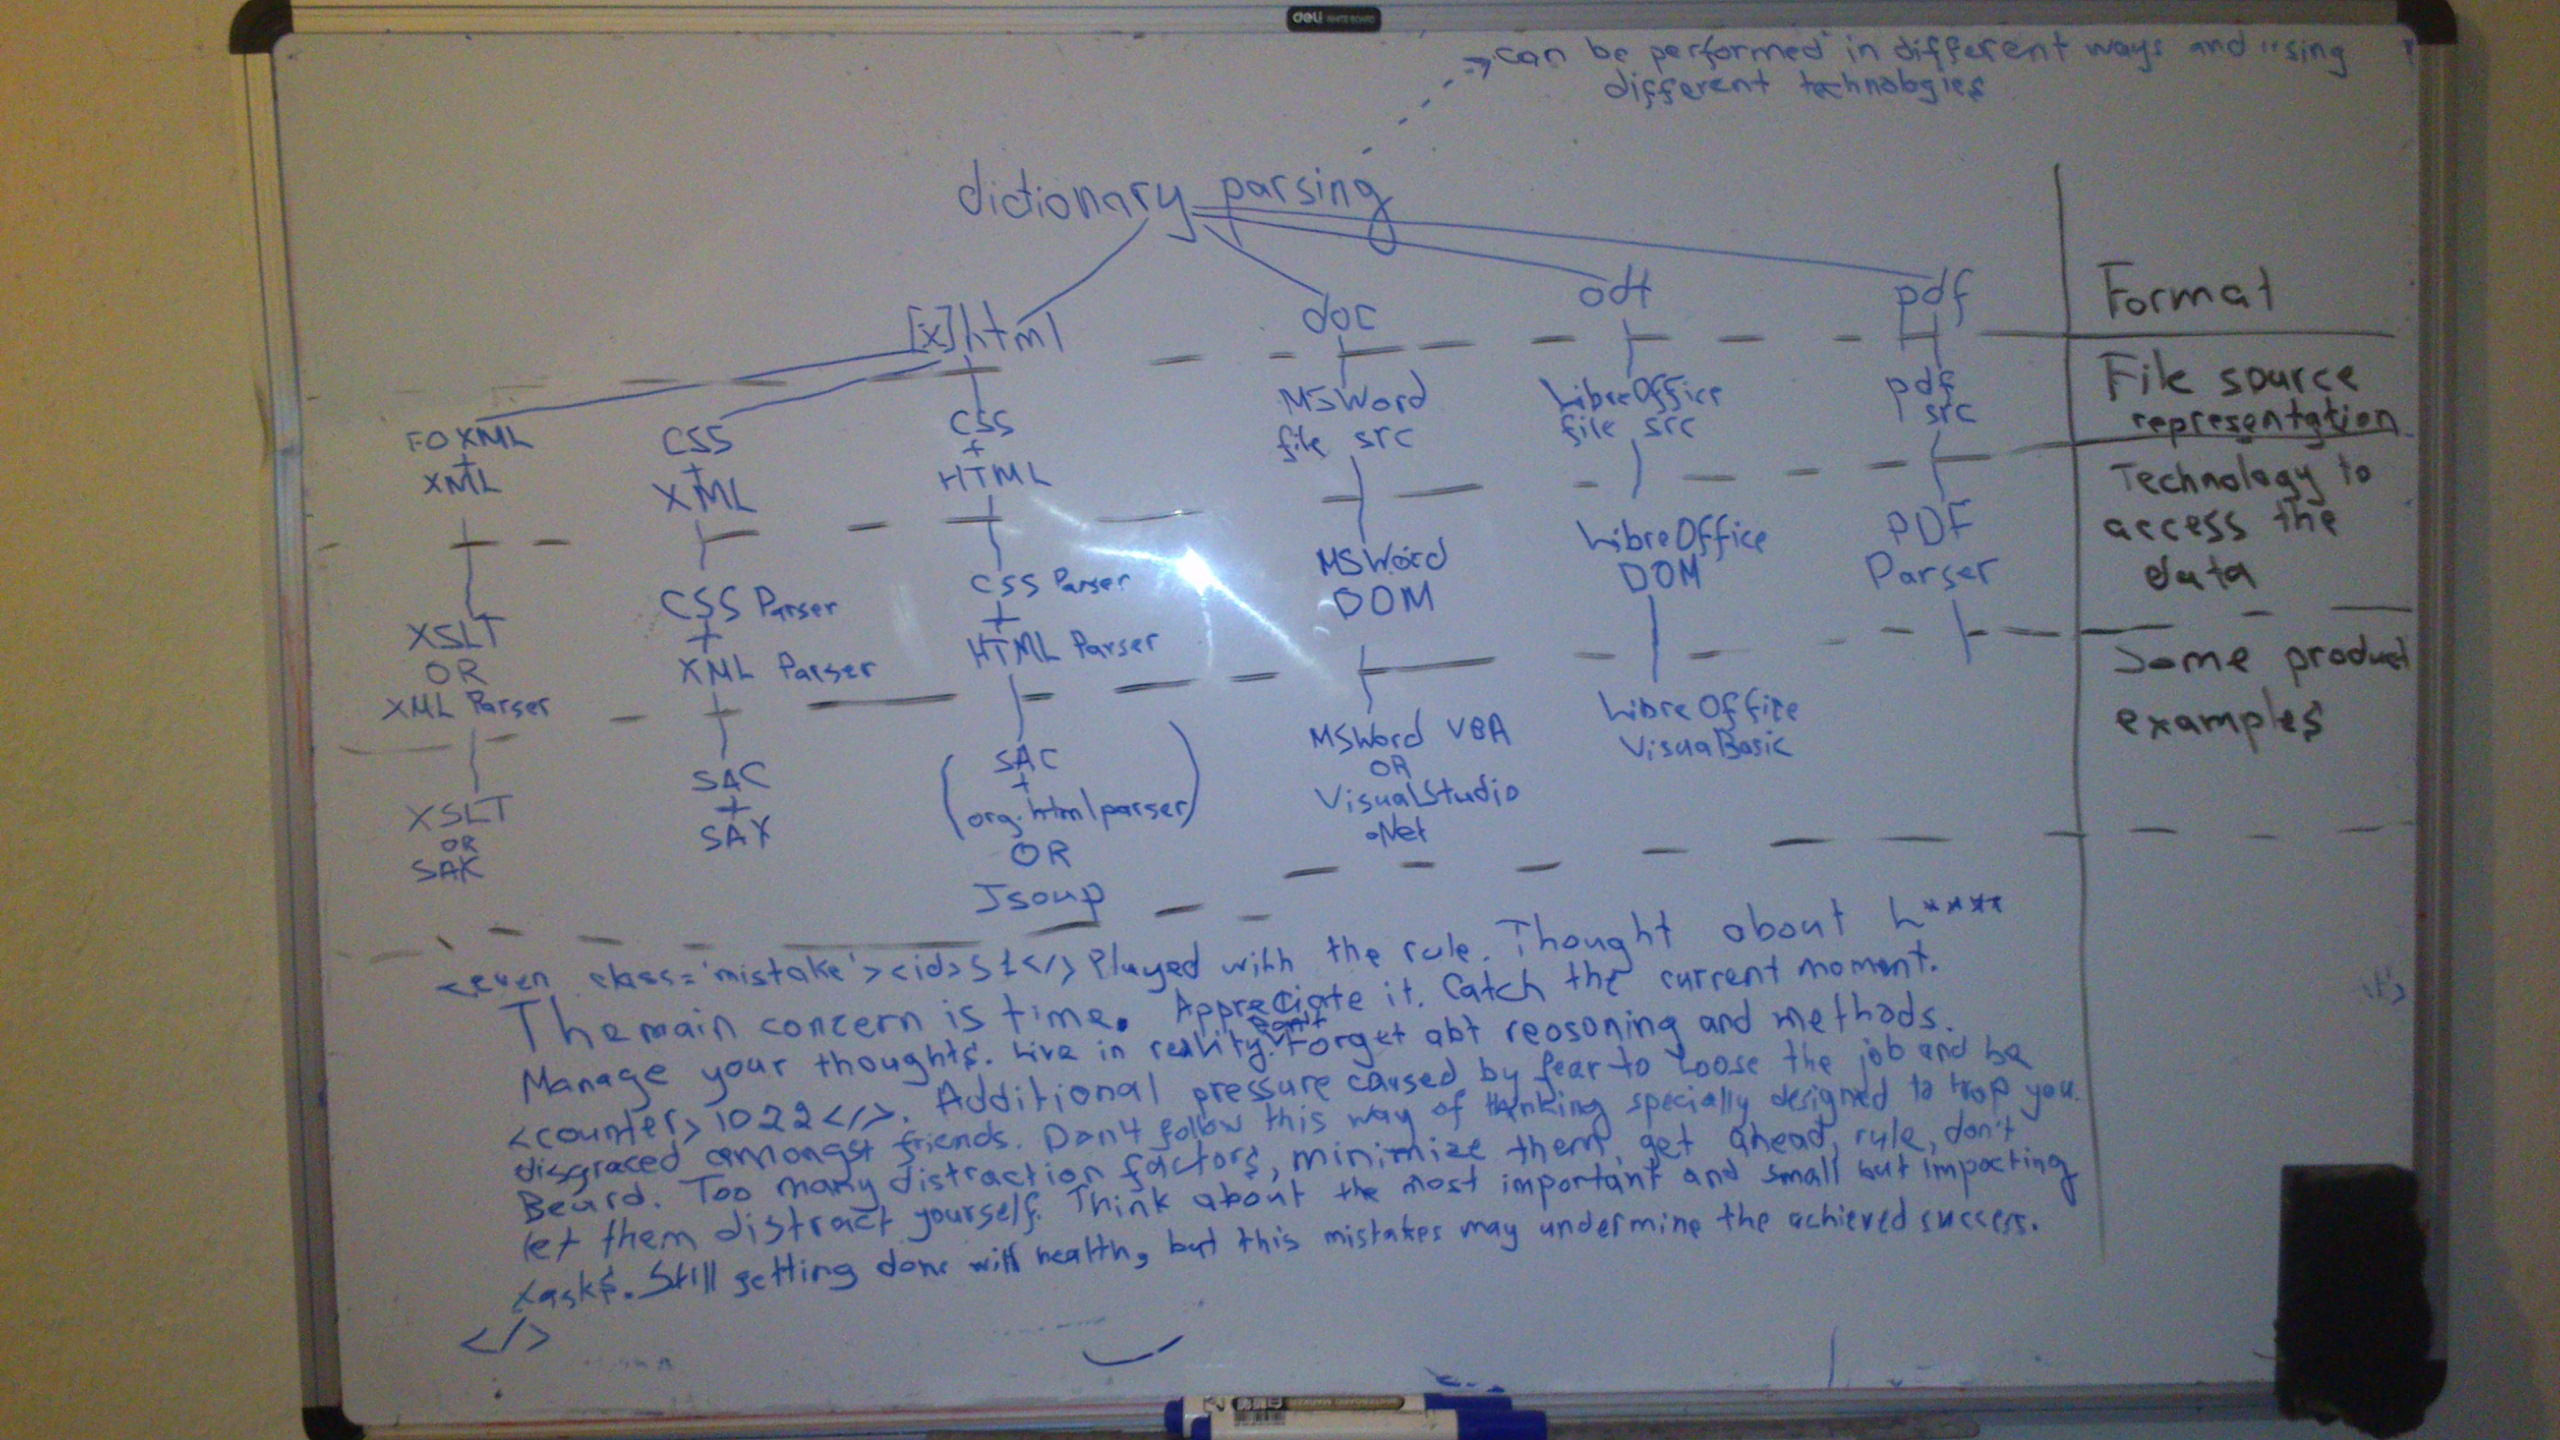 deli WHITE BOARD
can be performed in different ways and using
different technologies
dictionary parsing
[x]html doc odt pdf Format
FOXML + XML
CSS + XML
CSS + HTML
MSWord file src
LibreOffice file src
pdf src
File source representation
XSLT OR XML Parser
CSS Parser + XML Parser
CSS Parser + HTML Parser
MSWord DOM
LibreOffice DOM
PDF Parser
Technology to access the data
XSLT OR SAX
SAC + SAX
(SAC + org.htmlparser) OR Jsoup
MSWord VBA OR VisualStudio .Net
LibreOffice VisualBasic
Some product examples
<even class='mistake'><id>51</> Played with the rule. Thought about h****
The main concern is time. Appreciate it. Catch the current moment.
Manage your thoughts. Live in reality. Don't Forget abt reosoning and methods.
<counter>1022</>. Additional pressure caused by fear to loose the job and be
disgraced amongst friends. Don't follow this way of thinking specially designed to trap you.
Beard. Too many distraction factors, minimize them, get ahead, rule, don't
let them distract yourself. Think about the most important and small but impacting
tasks. Still getting done with health, but this mistakes may undermine the achieved success.
</>